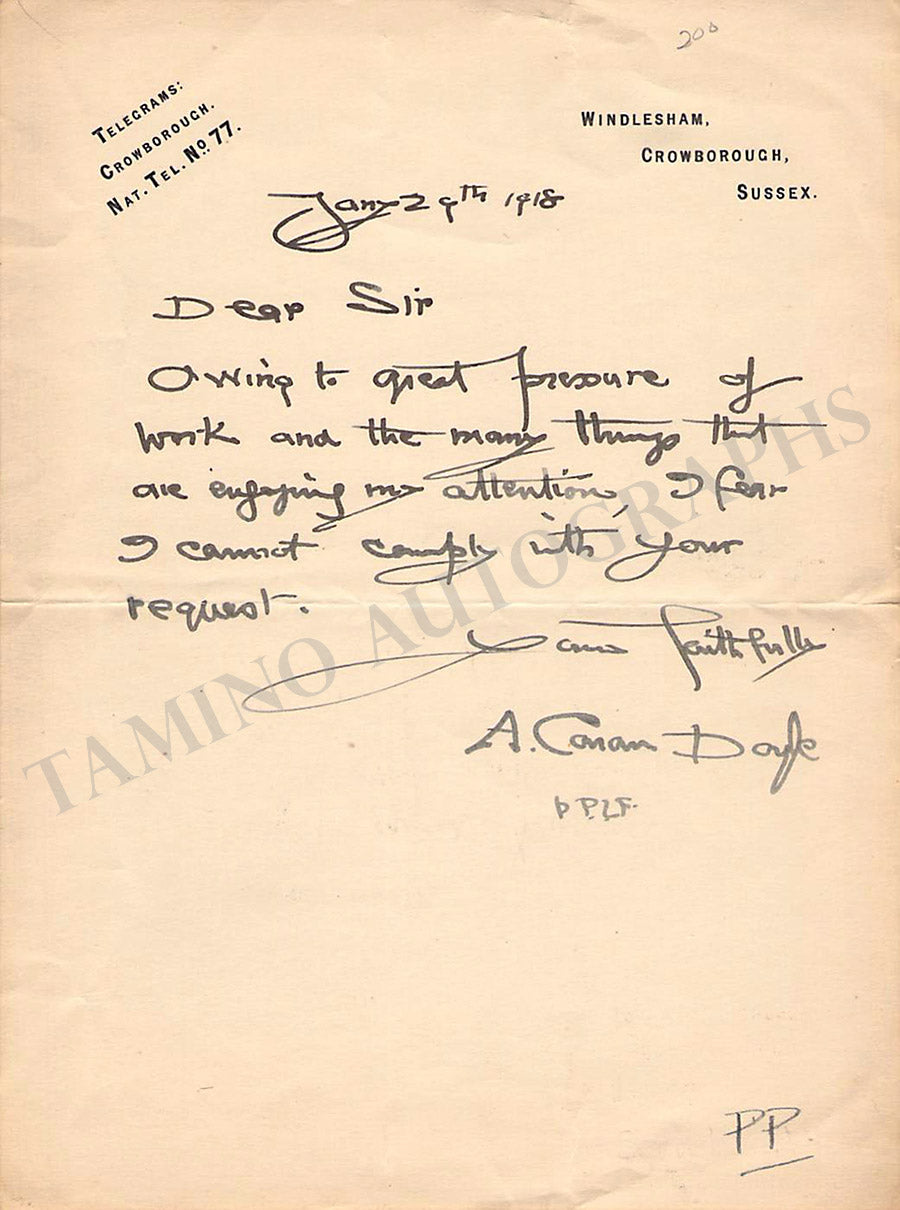 200
TELEGRAMS:
CROWBOROUGH.
NAT. TEL. NO. 77.
WINDLESHAM,
CROWBOROUGH,
SUSSEX.
Jany 29th 1918
Dear Sir
Owing to great pressure of
work and the many things that
are engaging my attention, I fear
I cannot comply with your
request.
Yours faithfully
A. Conan Doyle
PP
TAMINO AUTOGRAPHS